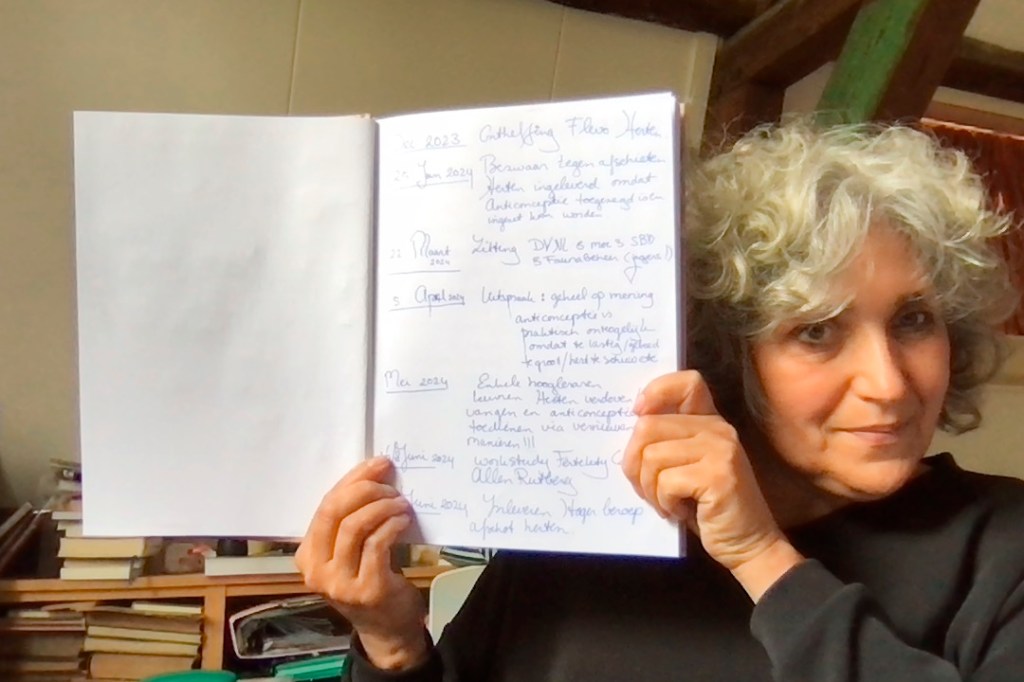 2023 Ontheffing Flevo Herten
Jan 2024 Bezwaar tegen afschieten
Herten ingeleverd omdat
Anticonceptie toegezegd is en
ingezet kon worden
22 Maart 2024 Zitting DVNL 6 mae 3 SBB
5 Faunabeheer (jagers!)
5 April 2024 Uitspraak: geheel op mening
anticonceptie is
praktisch onmogelijk
omdat te lastig/gebied
te groot/hert te schuw etc
Mei 2024 Enkele hoogleraren
kunnen Herten verdoven/
vangen en anticonceptie
toedienen via vernieuwen
manieren!!!
Juni 2024 workstudy Fertility
Allen Rutberg
June 2024 Inleveren Hoger beroep
afschot herten